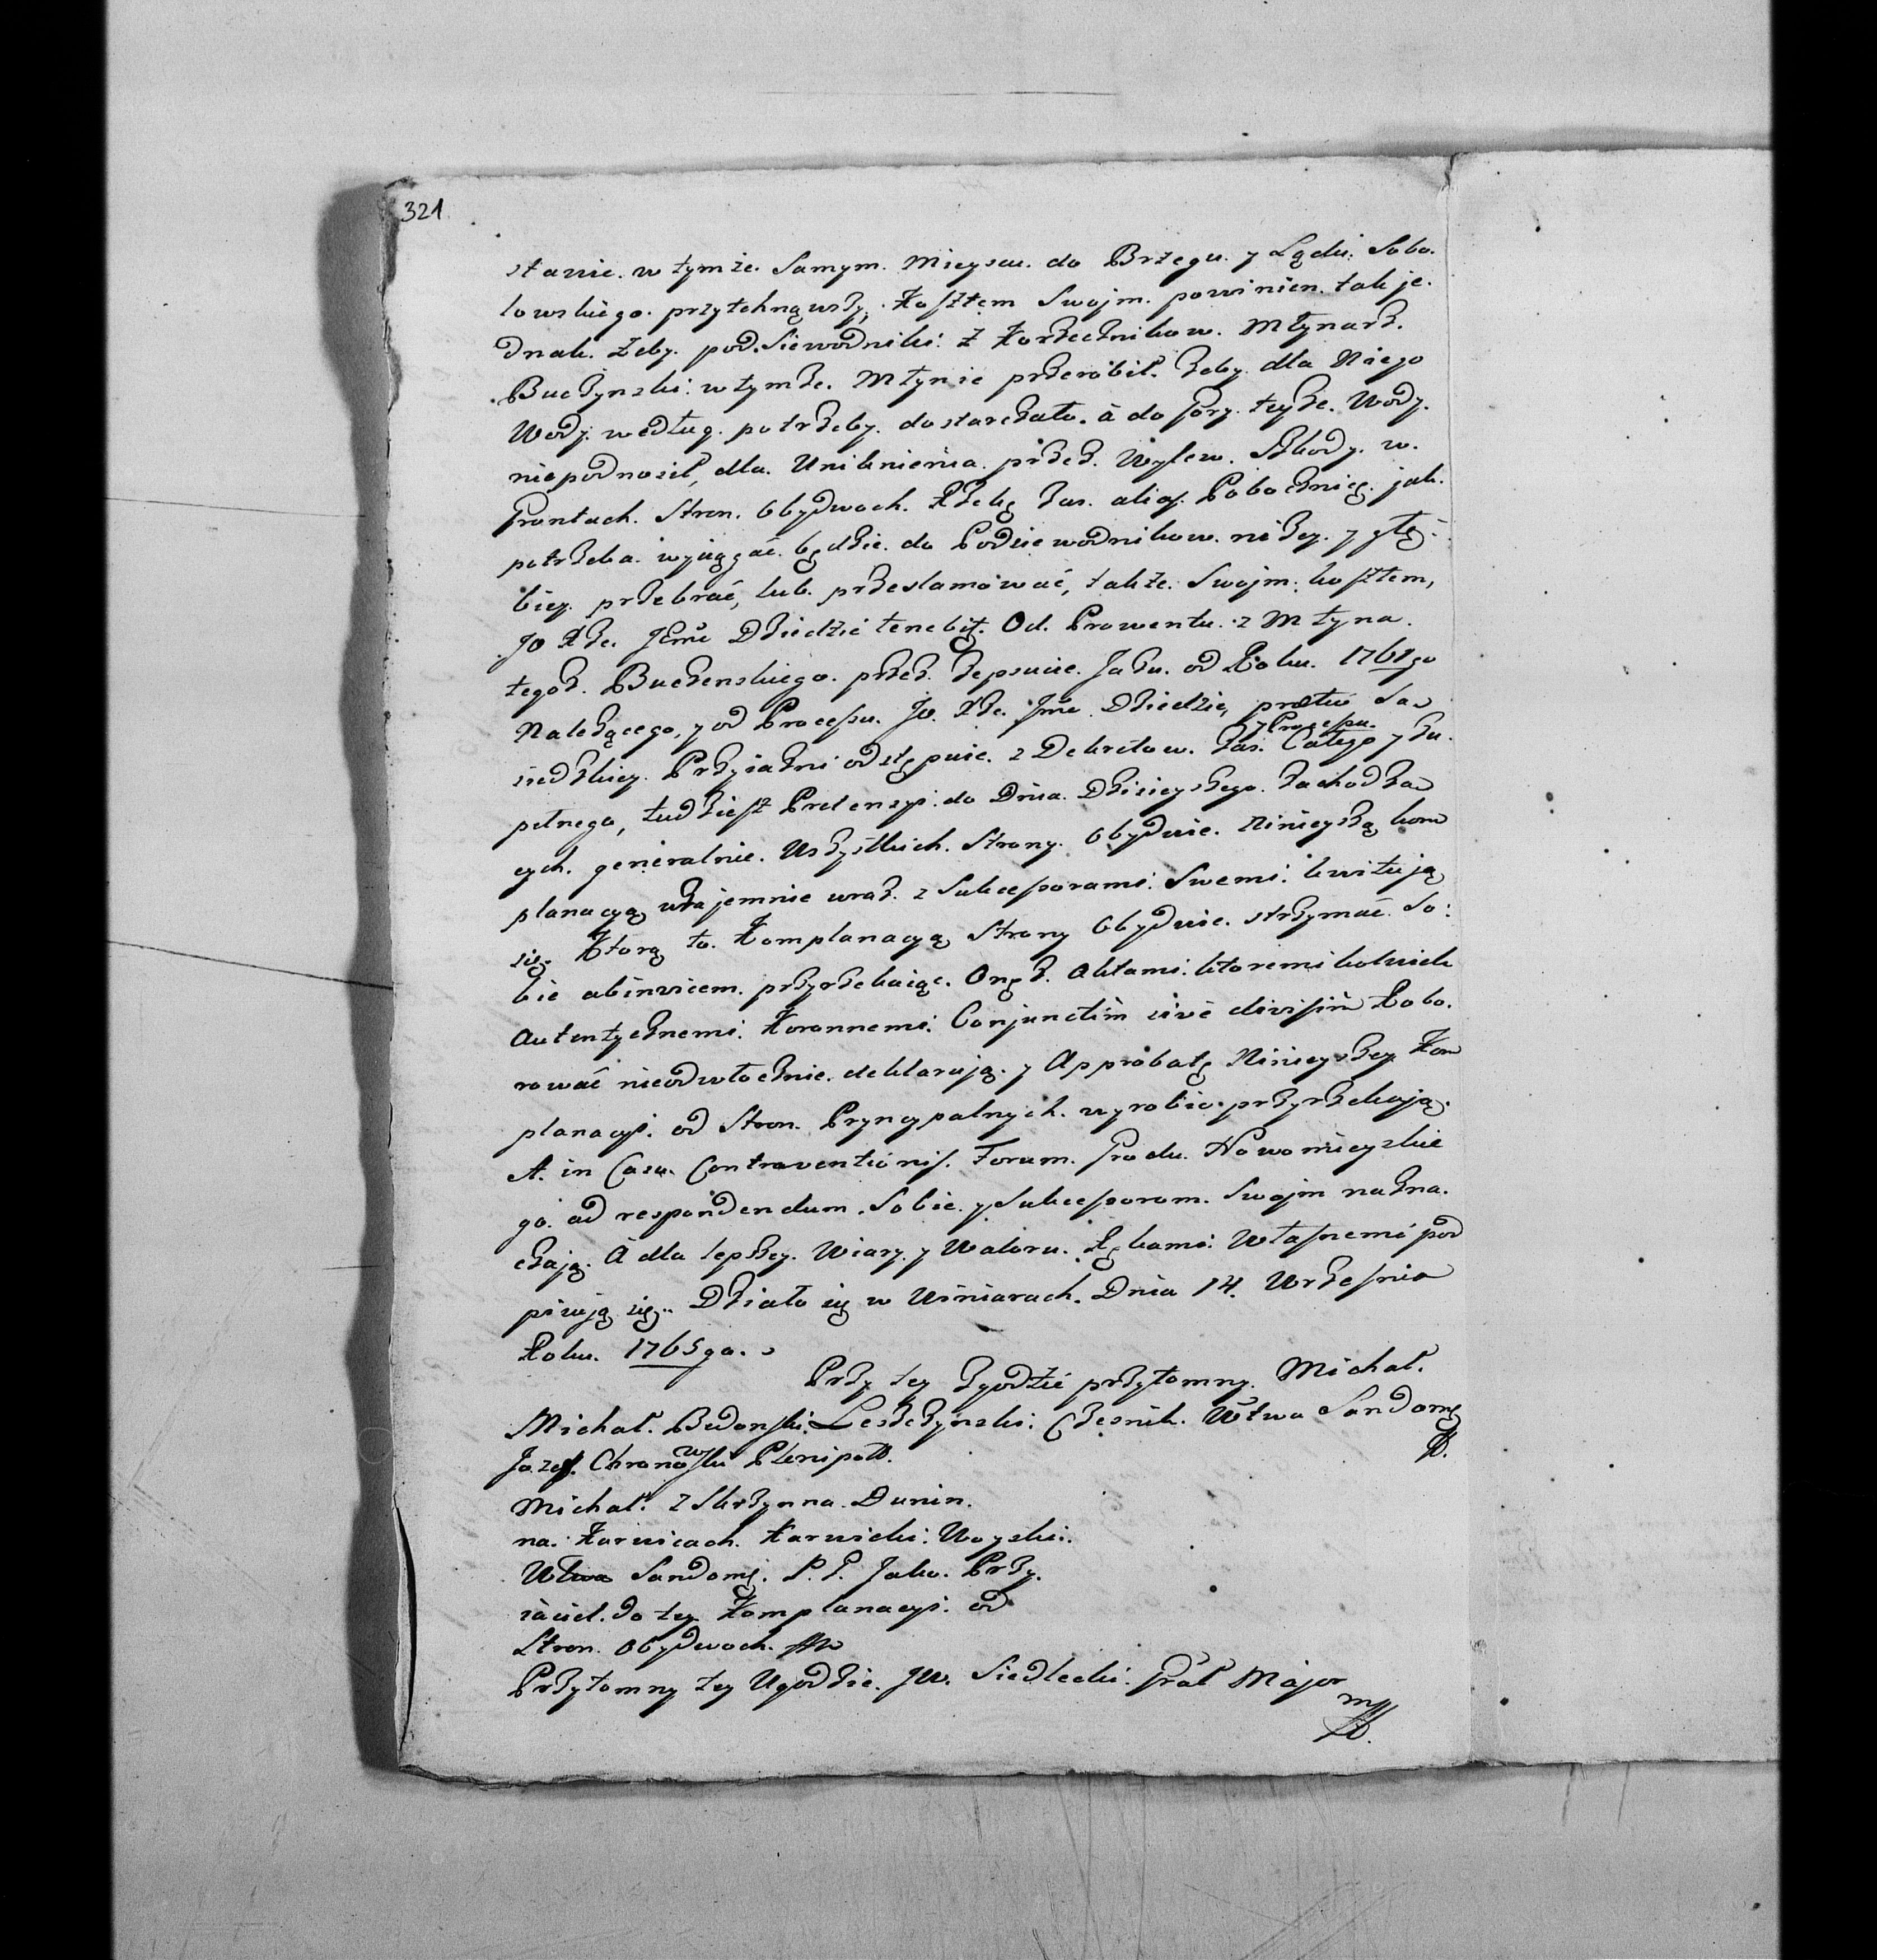 321
stawie. w tymże. Samym. Mieyscu. do Brzegu. y Lądu. Sobo.
lowskiego. przytchnąwszy, Kosztem Swojm. powinien. tak je.
dnak. żeby. podsiewodniki. z Korzecznikow. Młynarz.
Buczynski. w tymże. Młynie przerobił. żeby dla Niego
Wody. według. potrzeby. dostarczało. à do gory. teyże. Wody.
niepodnosił, dla. Uniknienia. przez. Wylew. Szkody. w.
Gruntach. Stron. Obydwoch. Rzekę zas. alias. Pobocznię. jak.
potrzeba. wyciągać. będzie. do Podsiewodnikow. niżey. y głę-
biey. przebrać, lub. przesłamować, także. Swojm. kosztem,
JO Xże. Jmć Dziedzic tenebit. Od. Prowentu. z Młyna.
tegoż. Buczenskiego. przez. zepsucie. Jazu. od Roku. 1761go
Należącego, y od Processu. Jo. Xże. Jmć. Dziedzic, prætio Sa
siedzkiey. Przyiazni odstępuie. z Dekretow. zas. Całego y zu.
y Processu.
pełnego, tudziesz Pretensyi. do Dnia. Dzisieyszego. zachodzą
cych. generalnie. Wszystkich. Strony. Obydwie. Ninieyszą kom
planacyą wzajemnie wraz. z Sukcessorami. Swemi. kwitują
się. Ktorą to. Komplanacyą Strony Obydwie. strzymać. So:
bie abinvicem. przyrzekaiąc. Onęż. Aktami. ktoremi kolwiek
Autentycznemi. Koronnemi. Conjunctim sive divisim Robo.
rować nieodwłocznie. deklarują. y Approbatę Ninieyszey Kom
planacyi. od Stron. Pryncypalnych. wyrobic. przyrzekają.
A. in Casu. Contraventionis. Forum. Grodu. Nowomieyskie
go. ad respondendum. Sobie. y Sukcessorom. Swojm nazna.
czają. A dla lepszey. Wiary. y Waloru. Rękami. Własnemi pod
pisują się. Działo się w Winiarach. Dnia 14. Wrzesnia
Roku. 1765go.
Przy tey Zgodzie przytomny. Michał.
Michał. Leszczynski. Czesnik. Wtwa Sandomę
Jozef. Chronowski Plenipott.
Michał. z Skrzynna. Dunin.
na. Karwicach. Karwicki. Woyski.
Wtwa Sandomę. P. P. Jako. Przy.
iaciel. do tey Komplanacyi. od
Stron. Obydwoch. mp
Przytomny tey Ugodzie. JW. Siedlecki. Grał Major
mp